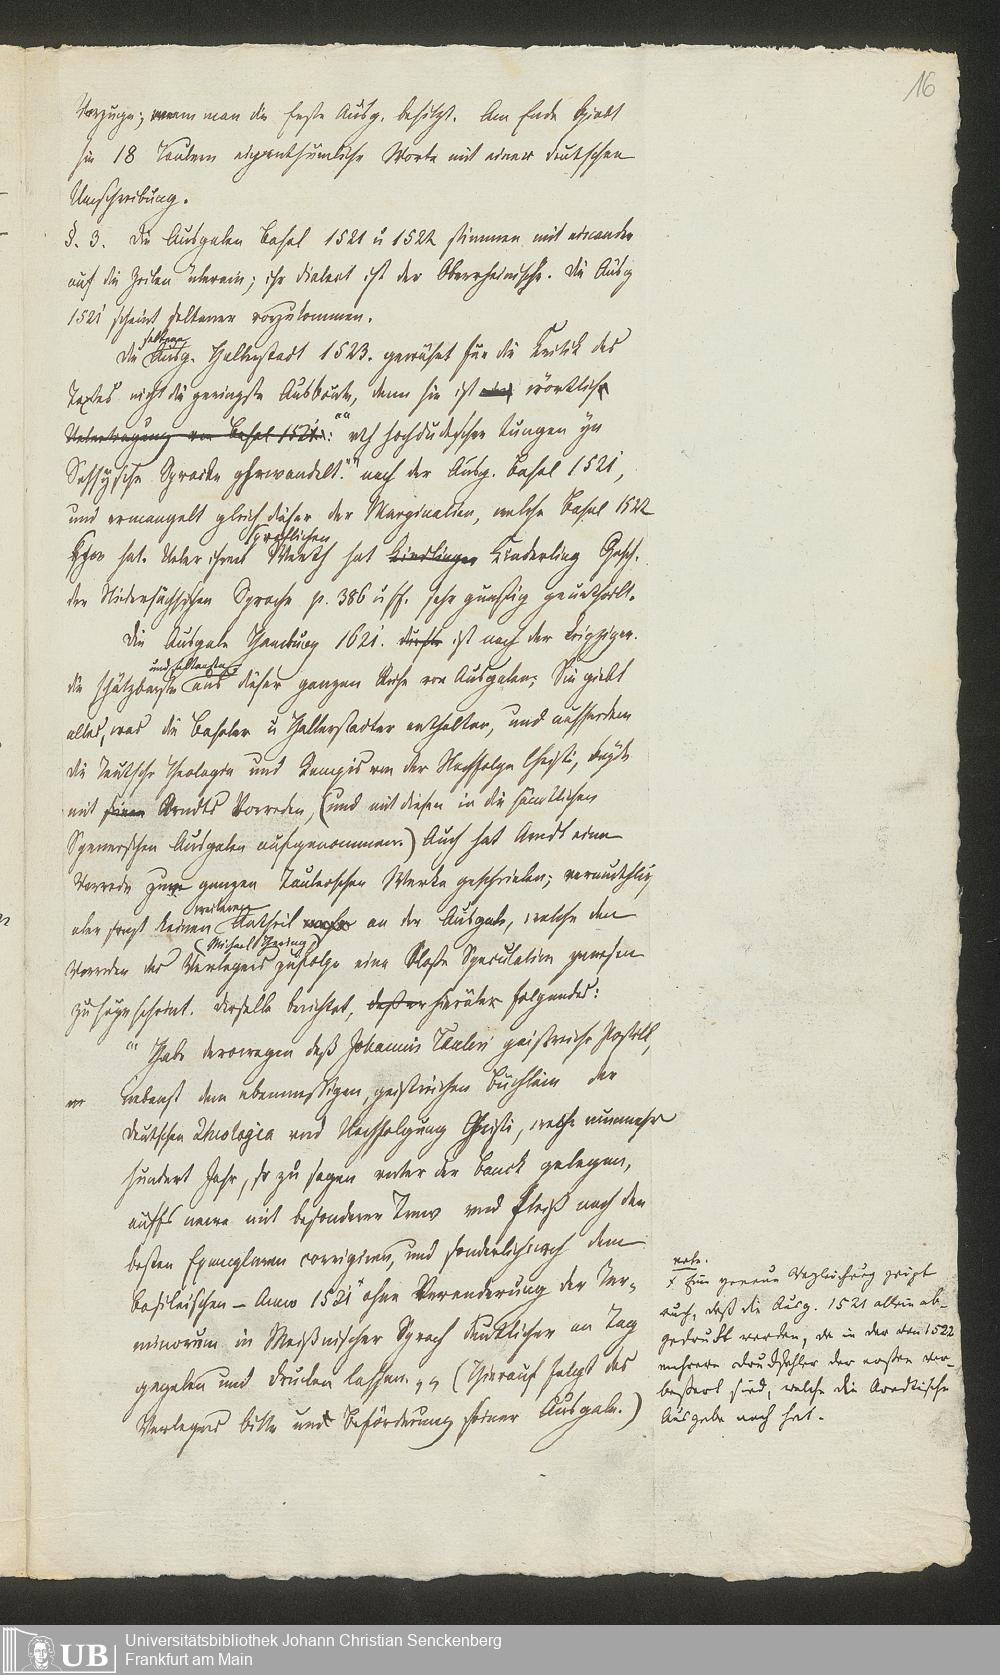 16
Vorzuge; wenn man die Erste Ausg. besitzt. Am Ende giebt
sie 18 Taulern eigenthümliche Worte mit einer deutschen
Umschreibung.
§. 3. Die Ausgaben Basel 1521 u 1522 stimmen mit einander
auf die Zeilen überein; ihr Dialect ist der Oberrheinische. Die Ausg
1521 scheint seltener vorzukommen.
seltene
Die Ausg. Halberstadt 1523. gewährt für die Kritik des
Textes nicht die geringste Ausbeute, denn sie ist wörtlich
Uebertragung von Basel 1521.: "uth hochdudescher tungen yn
Sassysche Sprocke ghewandelt." nach der Ausg. Basel 1521,
und ermangelt gleich dieser der Marginalien, welche Basel 1522
sprachlichen
hat. Ueber ihren Werth hat Kinderling Gesch.
der Niedersächsischen Sprache p. 386 u ff. sehr günstig geurtheilt.
Die Ausgabe Hamburg 1621. dürfte ist nach der Leipziger.
und seltenste
die schätzbarste aus dieser ganzen Reihe von Ausgaben; Sie giebt
alles, was die Baseler u Halberstadter enthalten, und ausserdem
die Teutsche Theologia und Kempis von der Nachfolge Christi, beyde
mit seinen Arndts Vorreden, (und mit diesen in die sämtlichen
Spenerschen Ausgaben aufgenommen.) Auch hat Arndt eine
Vorrede zum ganzen Taulerschen Werke geschrieben; vermuthlich
weiteren
aber sonst keinen Antheil mehr an der Ausgabe, welche den
(Michael Hering)
Vorreden des Verlegers zufolge eine Bloße Speculation gewesen
zu seyn scheint. Derselbe berichtet, hierüber folgendes:
"Habe derowegen deß Johannis Tauleri geistreiche Postill,
nebenst dem ebenmessigen, geistreichen Büchlein der
Deutschen Theologia vnd Nachfolgung Christi, welche nunmehr
hundert Jahr, so zu sagen vnter der Banck gelegen,
auffs newe mit besonderer Trew vnd Fleiß nach den
besten Exemplaren corrigiren, und sonderlich nach dem
Basileischen – Anno 1521 ohne Veranderung der Ter-
minorum in Meißnischer Sprach deutlicher an Tag
gegeben und drucken lassen." (Hierauf folgt des
Verlegers Bitte und Beförderung seiner Ausgabe.)
note.
x Eine genaue Vergleichung zeigt
auch, daß die Ausg. 1521 allein ab-
gedruckt worden, da in der von 1522
mehrere Druckfehler der ersten ver-
bessert sind, welche die Arndtische
Ausgabe noch hat.
UB
Universitätsbibliothek Johann Christian Senckenberg
Frankfurt am Main